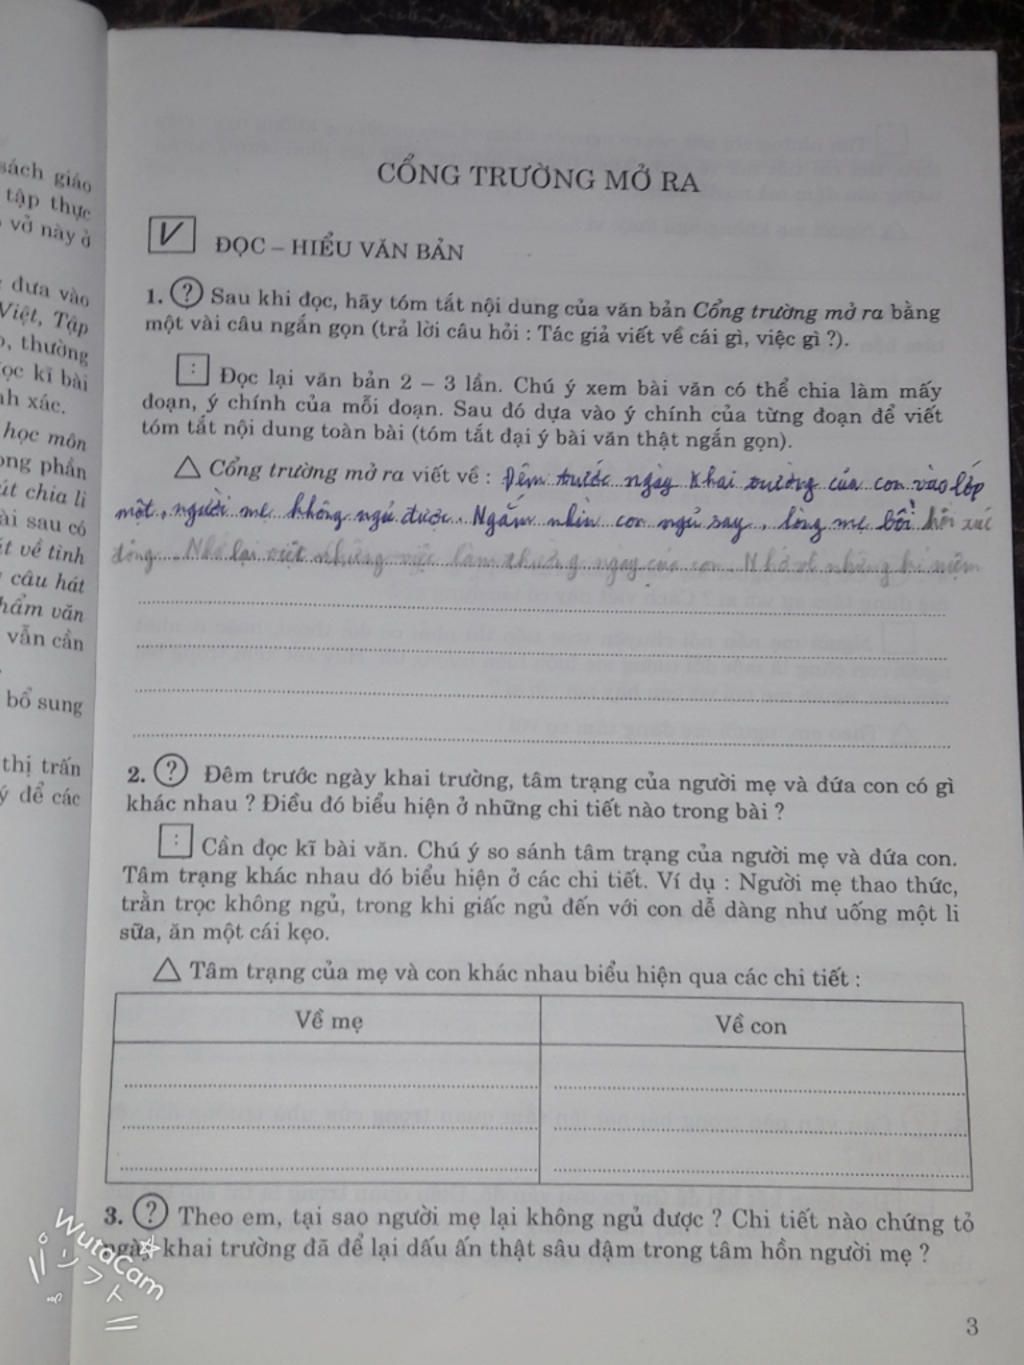 sách giáo
tập thực
vở này ở
đưa vào
Việt, Tập
thường
đọc kĩ bài
xác.
học môn
ong phần
út chia li
ài sau có
t về tình
câu hát
hẩm văn
vẫn cần
bổ sung
thị trấn
ý để các
CỔNG TRƯỜNG MỞ RA
V ĐỌC – HIỂU VĂN BẢN
1. ? Sau khi đọc, hãy tóm tắt nội dung của văn bản Cổng trường mở ra bằng
một vài câu ngắn gọn (trả lời câu hỏi : Tác giả viết về cái gì, việc gì ?).
: Đọc lại văn bản 2 – 3 lần. Chú ý xem bài văn có thể chia làm mấy
đoạn, ý chính của mỗi đoạn. Sau đó dựa vào ý chính của từng đoạn để viết
tóm tắt nội dung toàn bài (tóm tắt đại ý bài văn thật ngắn gọn).
△ Cổng trường mở ra viết về : Đêm trước ngày khai trường của con vào lớp
một, người mẹ không ngủ được. Ngắm nhìn con ngủ say, lòng mẹ bồi hồi xúc
động. Nhớ lại việt những việc làm thường ngày của con. Nhớ về những kỉ niệm
2. ? Đêm trước ngày khai trường, tâm trạng của người mẹ và đứa con có gì
khác nhau ? Điều đó biểu hiện ở những chi tiết nào trong bài ?
: Cần đọc kĩ bài văn. Chú ý so sánh tâm trạng của người mẹ và đứa con.
Tâm trạng khác nhau đó biểu hiện ở các chi tiết. Ví dụ : Người mẹ thao thức,
trằn trọc không ngủ, trong khi giấc ngủ đến với con dễ dàng như uống một li
sữa, ăn một cái kẹo.
△ Tâm trạng của mẹ và con khác nhau biểu hiện qua các chi tiết :
Về mẹ
Về con
3. ? Theo em, tại sao người mẹ lại không ngủ được ? Chi tiết nào chứng tỏ
ngày khai trường đã để lại dấu ấn thật sâu đậm trong tâm hồn người mẹ ?
WutaCam
3